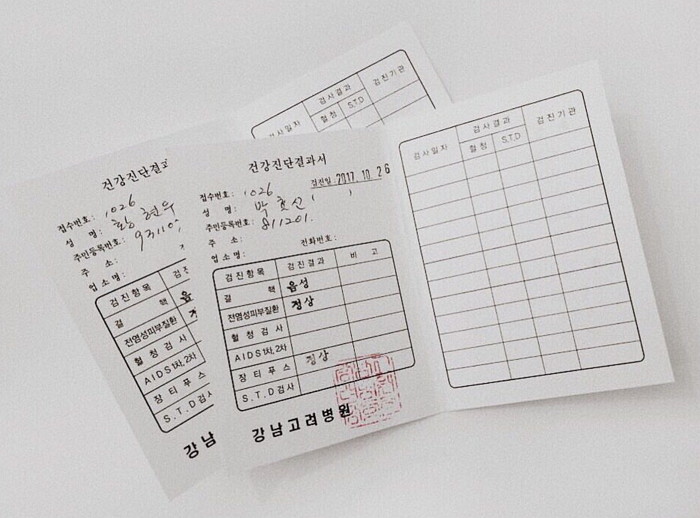 건강진단결과서
접수번호: 1026
검진일 2017. 10. 26
성 명: 박효신
주민등록번호: 811201.
주 소:
전화번호:
업소명:
검진항목 검진결과 비 고
결 핵 음성
전염성피부질환 정상
혈청검사
AIDS1차,2차
장티푸스 정상
S.T.D검사
강남고려병원
검사일자 검사결과 검진기관
혈청 S.T.D
건강진단결과
접수번호: 1026
성 명: 황현우
주민등록번호:
주 소:
업소명:
검진항목 검진
결 핵 음
전염성피부질환
혈청검사
AIDS1차,2차
장티푸스
S.T.D검사
강남
검사일자 검사결과 검진기관
혈청 S.T.D